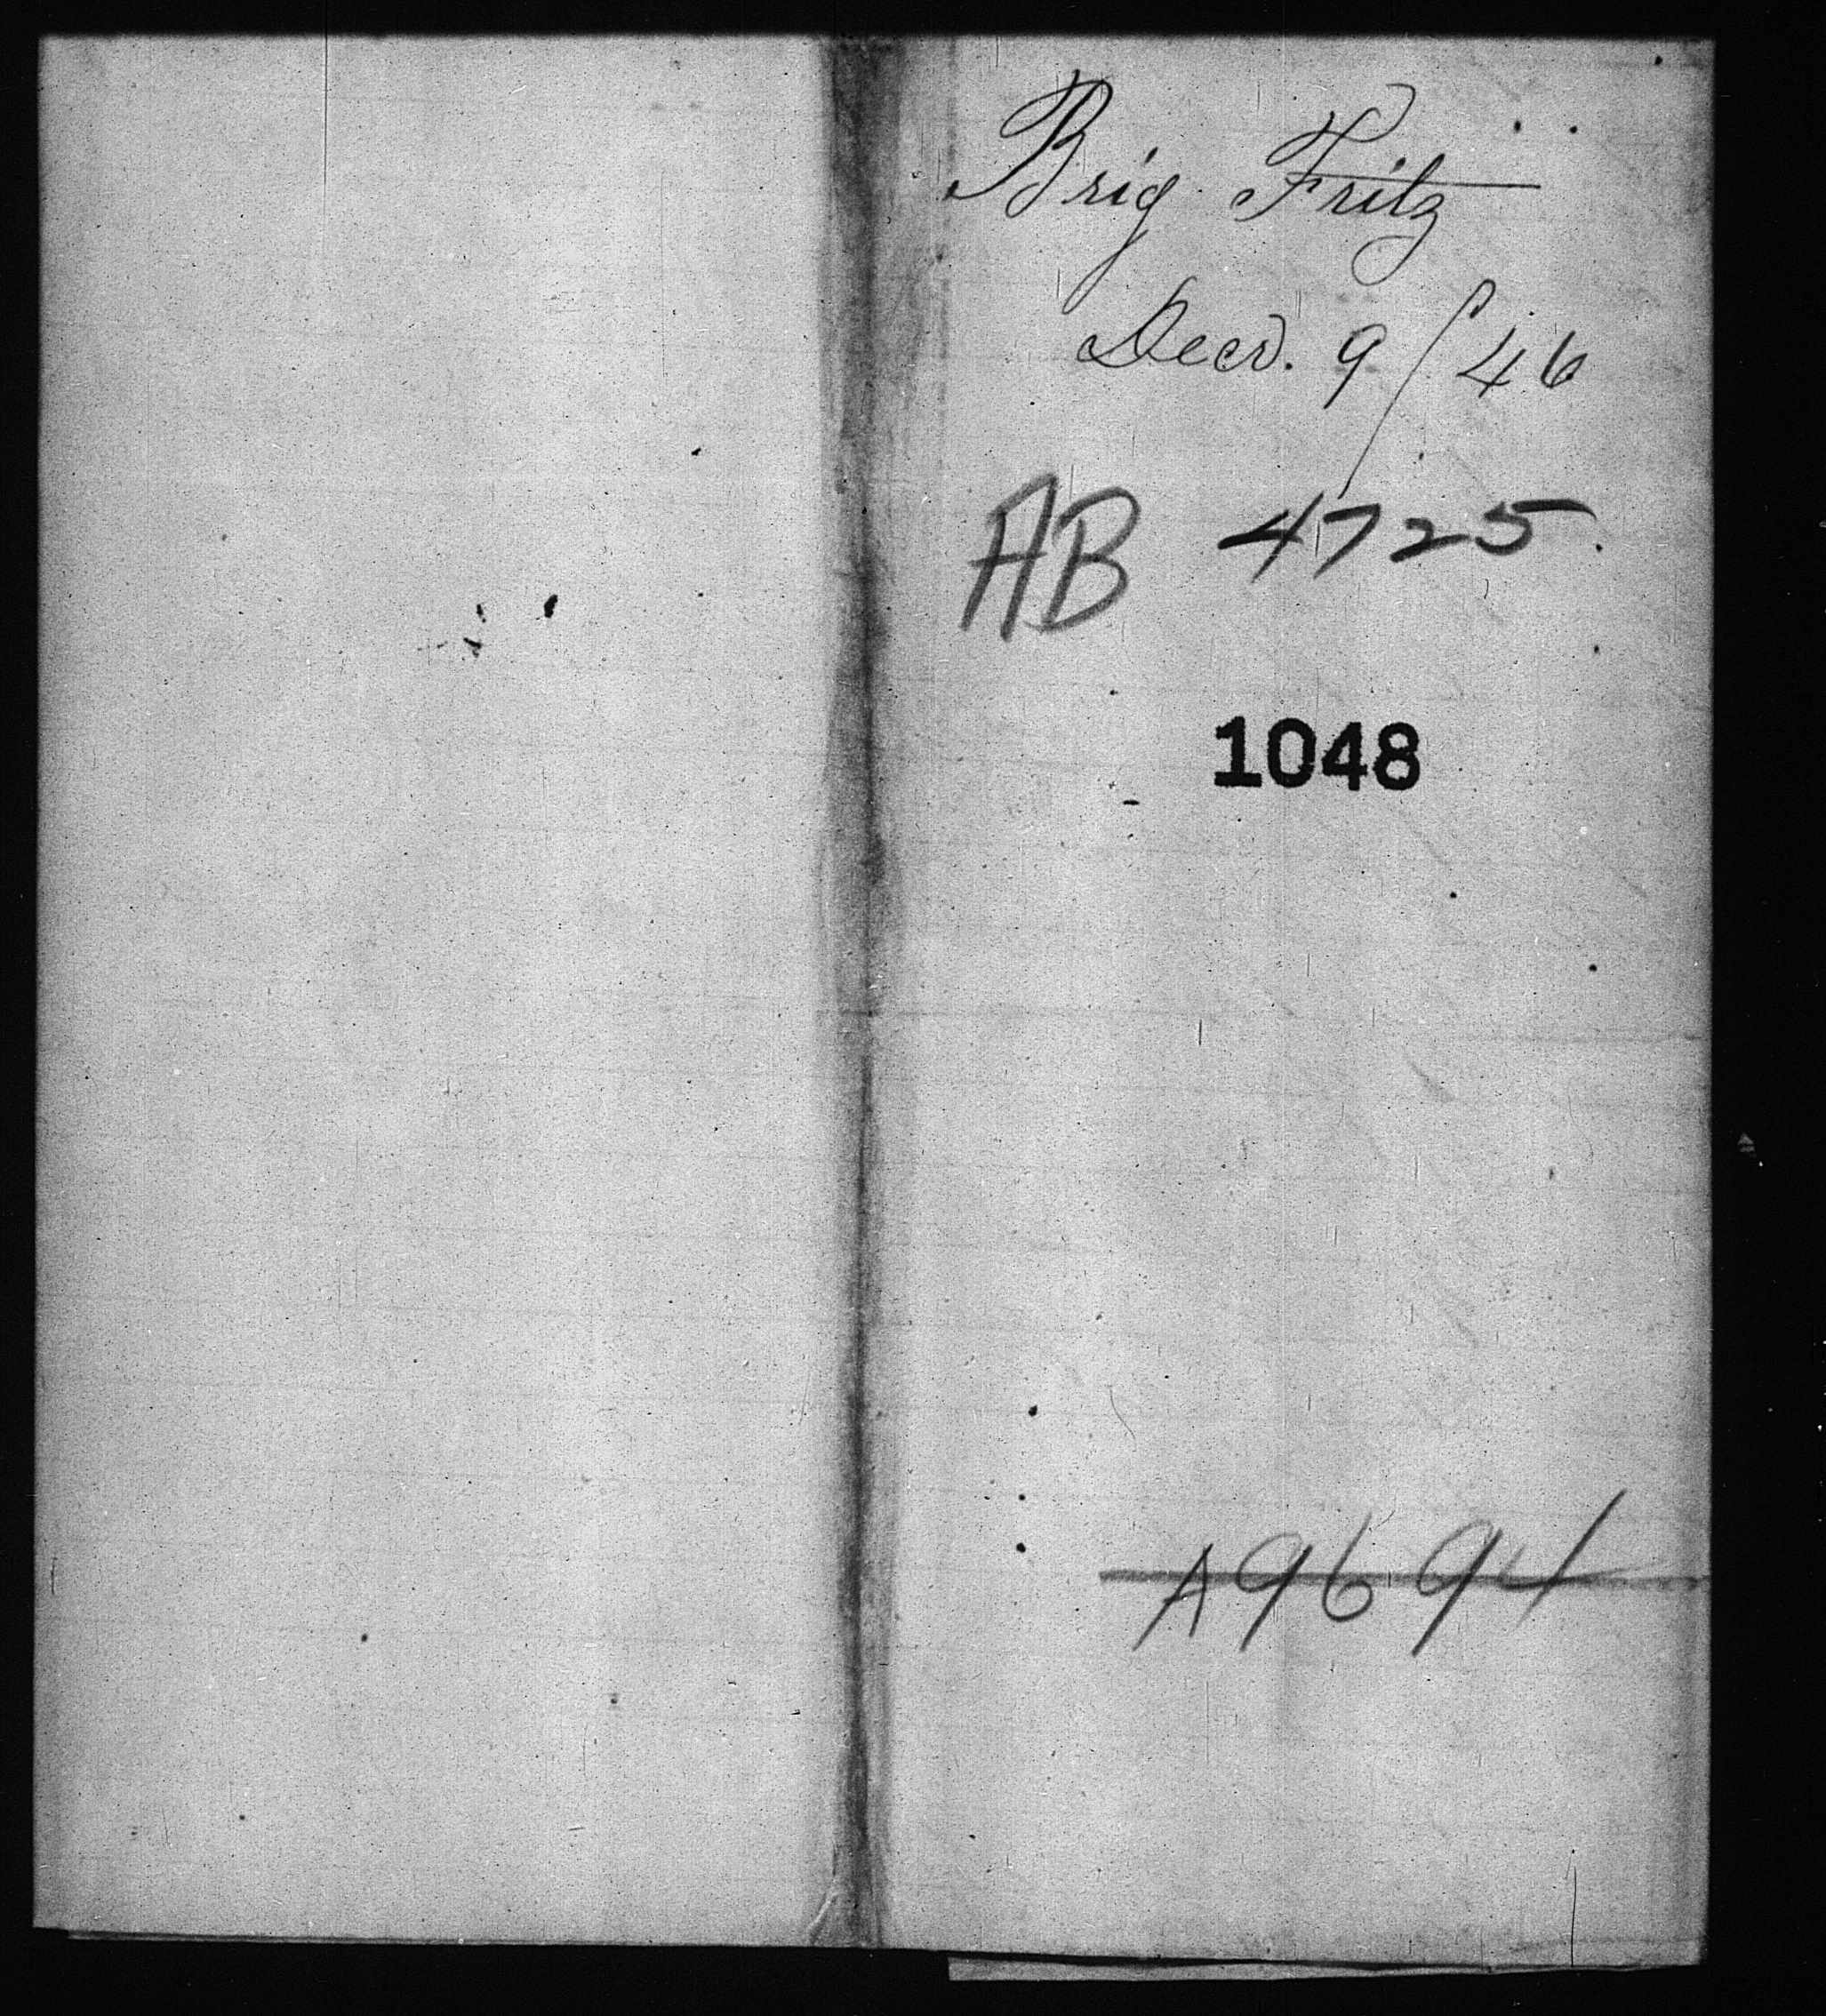 Brig Fritz
Decr. 9/46
AB 4725.
1048
A9694